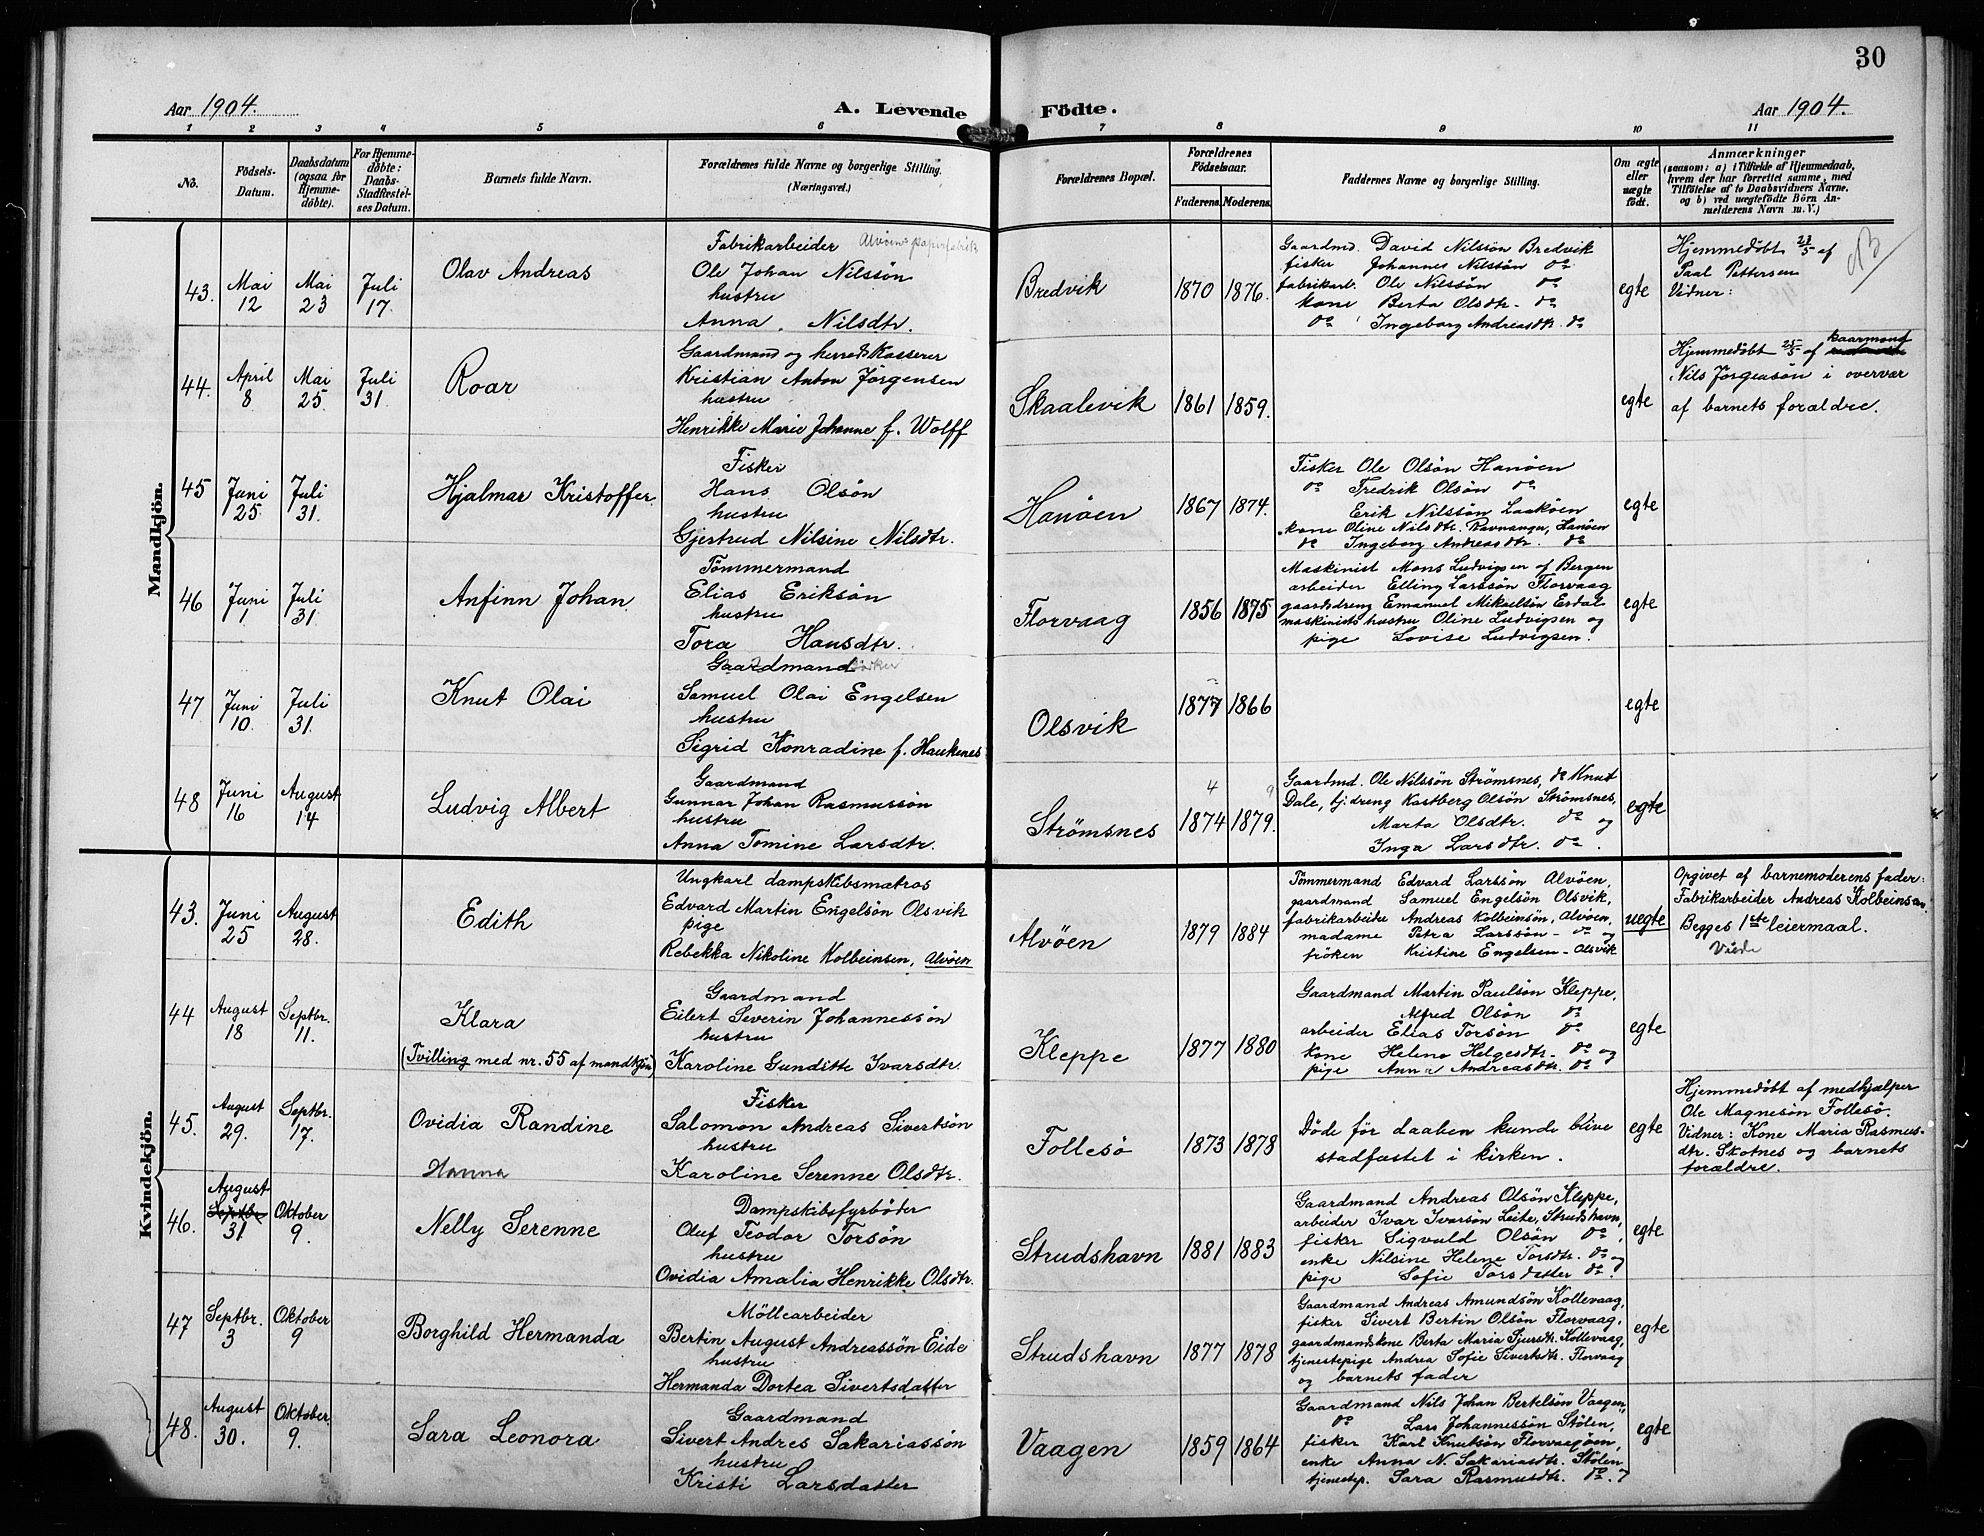 30
Aar 1904.
A. Levende Födte.
Aar 1904.
1 2 3 4 5 6 7 8 9 10 11
No.
Födsels-Datum.
Daabsdatum (ogsaa for Hjemme-döbte).
For Hjemme-döbte: Daabs-Stadfæstel-ses Datum.
Barnets fulde Navn.
Forældrenes fulde Navne og borgerlige Stilling.
(Næringsvei.)
Forældrenes Bopæl.
Forældrenes Födselsaar.
Faderens. Moderens.
Faddernes Navne og borgerlige Stilling.
Om ægte eller uægte født.
Anmærkninger
(saasom: a) i Tilfælde af Hjemmedaab,
hvem der har forrettet samme, med
Tilföielse af to Daabsvidners Navne.
og b) ved uægtefödte Börn An-
melderens Navn m. V.)
Mandkjön.
43. Mai 12 Mai 23 Juli 17.
Olav Andreas
Fabrikarbeider Alvøens papirfabrik
Ole Johan Nilssön
hustru
Anna Nilsdtr.
Bredvik
1870 1876.
Gaardmd. David Nilssön Bredvik
fisker Johannes Nilssön do
fabrikarb. Ole Nilssön do
kone Berta Olsdtr. do
do Ingeborg Andreasdtr. do
egte
Hjemmedøbt 23/5 af
Paal Pettersen
Vidner:
44. April 8 Mai 25. Juli 31.
Roar
Gaardmand og herredskasserer
Kristian Anton Jörgensen
hustru
Henrikke Marie Johanne f. Wolff
Skaalevik
1861 1859.
egte
Hjemmedøbt 25/5 af kaarmand
Nils Jörgensön i overvær
af barnets forældre.
45 Juni 25. Juli 31.
Hjalmar Kristoffer
Fisker
Hans Olsön
hustru
Gjertrud Nilsine Nilsdtr.
Hanöen
1867 1874.
Fisker Ole Olsön Hanöen
do Fredrik Olsön do
Erik Nilssön Laaköen
kone Oline Nilsdtr. Ravnanger, Hanöen
do Ingeborg Andreasdtr. do
egte
46 Juni 1 Juli 31.
Anfinn Johan
Tömmermand
Elias Eriksön
hustru
Tora Hansdtr.
Florvaag
1856 1875
Maskinist Mons Ludvigsen af Bergen
arbeider Elling Larssön Florvaag
gaardsdreng Emanuel Mikaelsön Esdal
maskinists hustru Oline Ludvigsen og
pige Lovise Ludvigsen.
egte
47 Juni 10. Juli 31.
Knut Olai
Gaardmand
Samuel Olai Engelsen
hustru
Sigrid Konradine f. Haukenes
Olsvik
1877 1866
egte
48 Juni 16 August 14
Ludvig Albert
Gaardmand
Gunnar Johan Rasmussön
hustru
Anna Tomine Larsdtr.
Strömsnes
4 9
1874 1879.
Gaardmd. Ole Nilssön Strömsnes, do Knut
Dale, tj.dreng Kastberg Olsön Strömsnes,
Marta Olsdtr. do og
Inga Larsdtr. do.
egte
Kvindekjön.
43. Juni 25 August 28.
Edith
Ungkarl dampskibsmatros
Edvard Martin Engelsön Olsvik
pige
Rebekka Nikoline Kolbeinsen, Alvöen
Alvöen
1879 1884
Tömmermand Edvard Larssön Alvöen,
gaardmand Samuel Engelsön Olsvik,
fabrikarbeider Andreas Kolbeinsön, Alvöen,
madame Petra Larssön - do og
fröken Kristine Engelsen - Olsvik
uegte
Opgivet af barnemoderens fader:
Fabrikarbeider Andreas Kolbeinsen.
Begges 1ste leiermaal.
44 August 18 Septbr. 11.
Klara
(Tvilling med nr. 55 af mandkjön)
Gaardmand
Eilert Severin Johannessön
hustru
Karoline Gunditte Ivarsdtr.
Kleppe
1877 1880
Gaardmand Martin Paulsön Kleppe,
Alfred Olsön do
arbeider Elias Torsön do
kone Helene Helgesdtr. do og
pige Anna Andreasdtr. do
egte
45. August 29. Septbr. 17.
Ovidia Randine
Hanna
Fisker
Salomon Andreas Sivertsön
hustru
Karoline Serenne Olsdtr.
Follesö
1873 1878
Döde för daaben kunde blive
stadfæstet i kirken.
egte
Hjemmedøbt af medhjælper
Ole Magnesön Follesö.
Vidner: Kone Maria Rasmus-
dtr. Skotnes og barnets
forældre.
46. August Septbr 31 Oktober 9.
Nelly Serenne
Dampskibsfyrböter
Oluf Teodor Torsön
hustru
Ovidia Amalia Henrikke Olsdtr.
Strudshavn
1881 1883
Gaardmand Andreas Olsön Kleppe,
arbeider Ivar Ivarsön Leite, Strudshavn,
fisker Sigvald Olsön do,
enke Nilsine Helene Torsdtr. do og
pige Sofie Torsdatter do.
egte
47 Septbr. 3 Oktober 9
Borghild Hermanda
Möllearbeider
Bertin August Andreassön Eide
hustru
Hermanda Dortea Sivertsdatter
Strudshavn
1877 1878
Gaardmand Andreas Amundsön Kollevaag,
fisker Sivert Bertin Olsön Florvaag,
gaardmandskone Berta Maria Sjursdtr. Kollevaag,
tjenestepige Andrea Sofie Sivertsdtr. Florvaag
og barnets fader
egte
48. August 30. Oktober 9.
Sara Leonora
Gaardmand
Sivert Andres Sakariassön
hustru
Kristi Larsdatter
Vaagen
1859 1864
Gaardmand Nils Johan Bertelsön Vaagen,
do Lars Johannessön Stölen,
fisker Karl Knutsön Florvaagöen,
enke Anna N. Sakariasdtr. Stölen
tjenestep. Sara Rasmusdtr. do.
egte